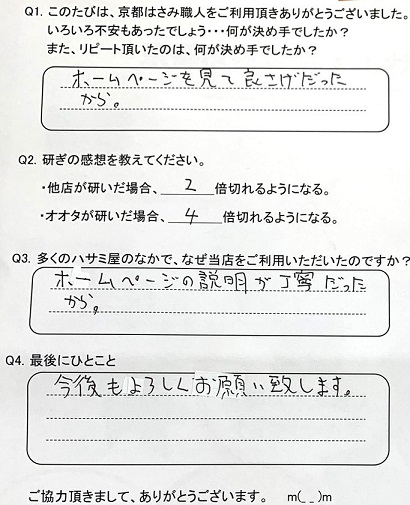 Q1. このたびは、京都はさみ職人をご利用頂きありがとうございました。
いろいろ不安もあったでしょう・・・何が決め手でしたか？
また、リピート頂いたのは、何が決め手でしたか？
ホームページを見て良さげだった
から。
Q2. 研ぎの感想を教えてください。
・他店が研いだ場合、 2 倍切れるようになる。
・オオタが研いだ場合、 4 倍切れるようになる。
Q3. 多くのハサミ屋のなかで、なぜ当店をご利用いただいたのですか？
ホームページの説明が丁寧だった
から。
Q4. 最後にひとこと
今後もよろしくお願い致します。
ご協力頂きまして、ありがとうございます。 m(_ _)m